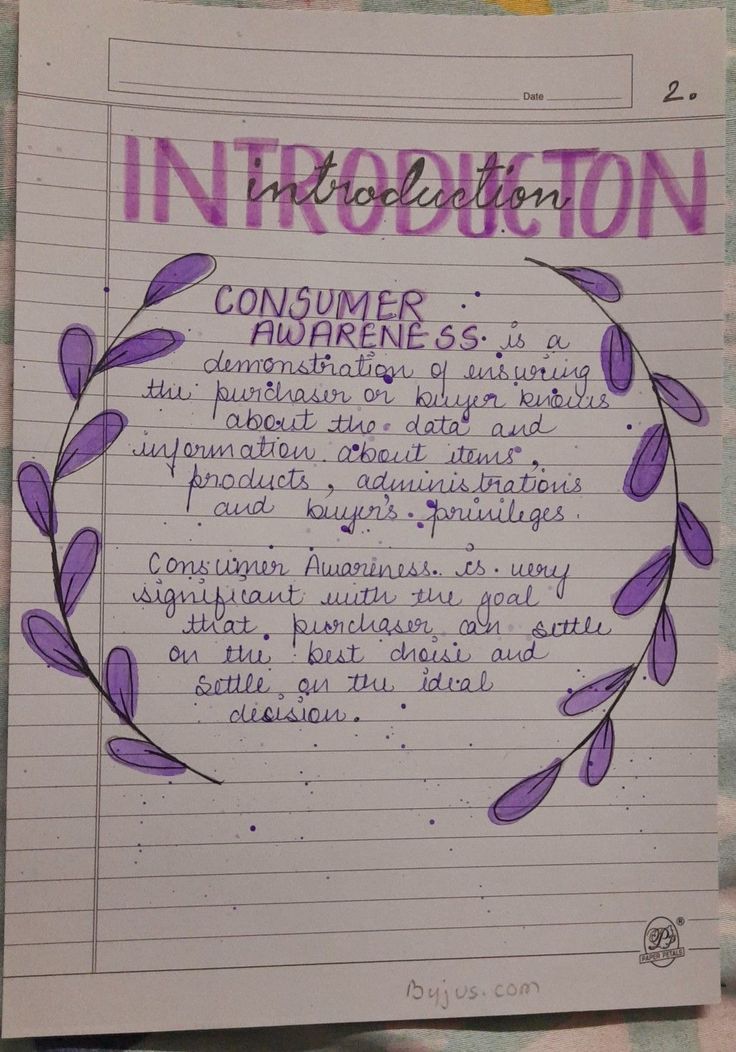 Date
2.
INTRODUCTON
introduction
CONSUMER
AWARENESS. is a
demonstration of ensuring
the purchaser or buyer knows
about the data and
information about items,
products, administrations
and buyer's privileges.
Consumer Awareness. is very
significant with the goal
that purchaser can settle
on the best choise and
settle on the ideal
decision.
PAPER PETALS
Byjus.com